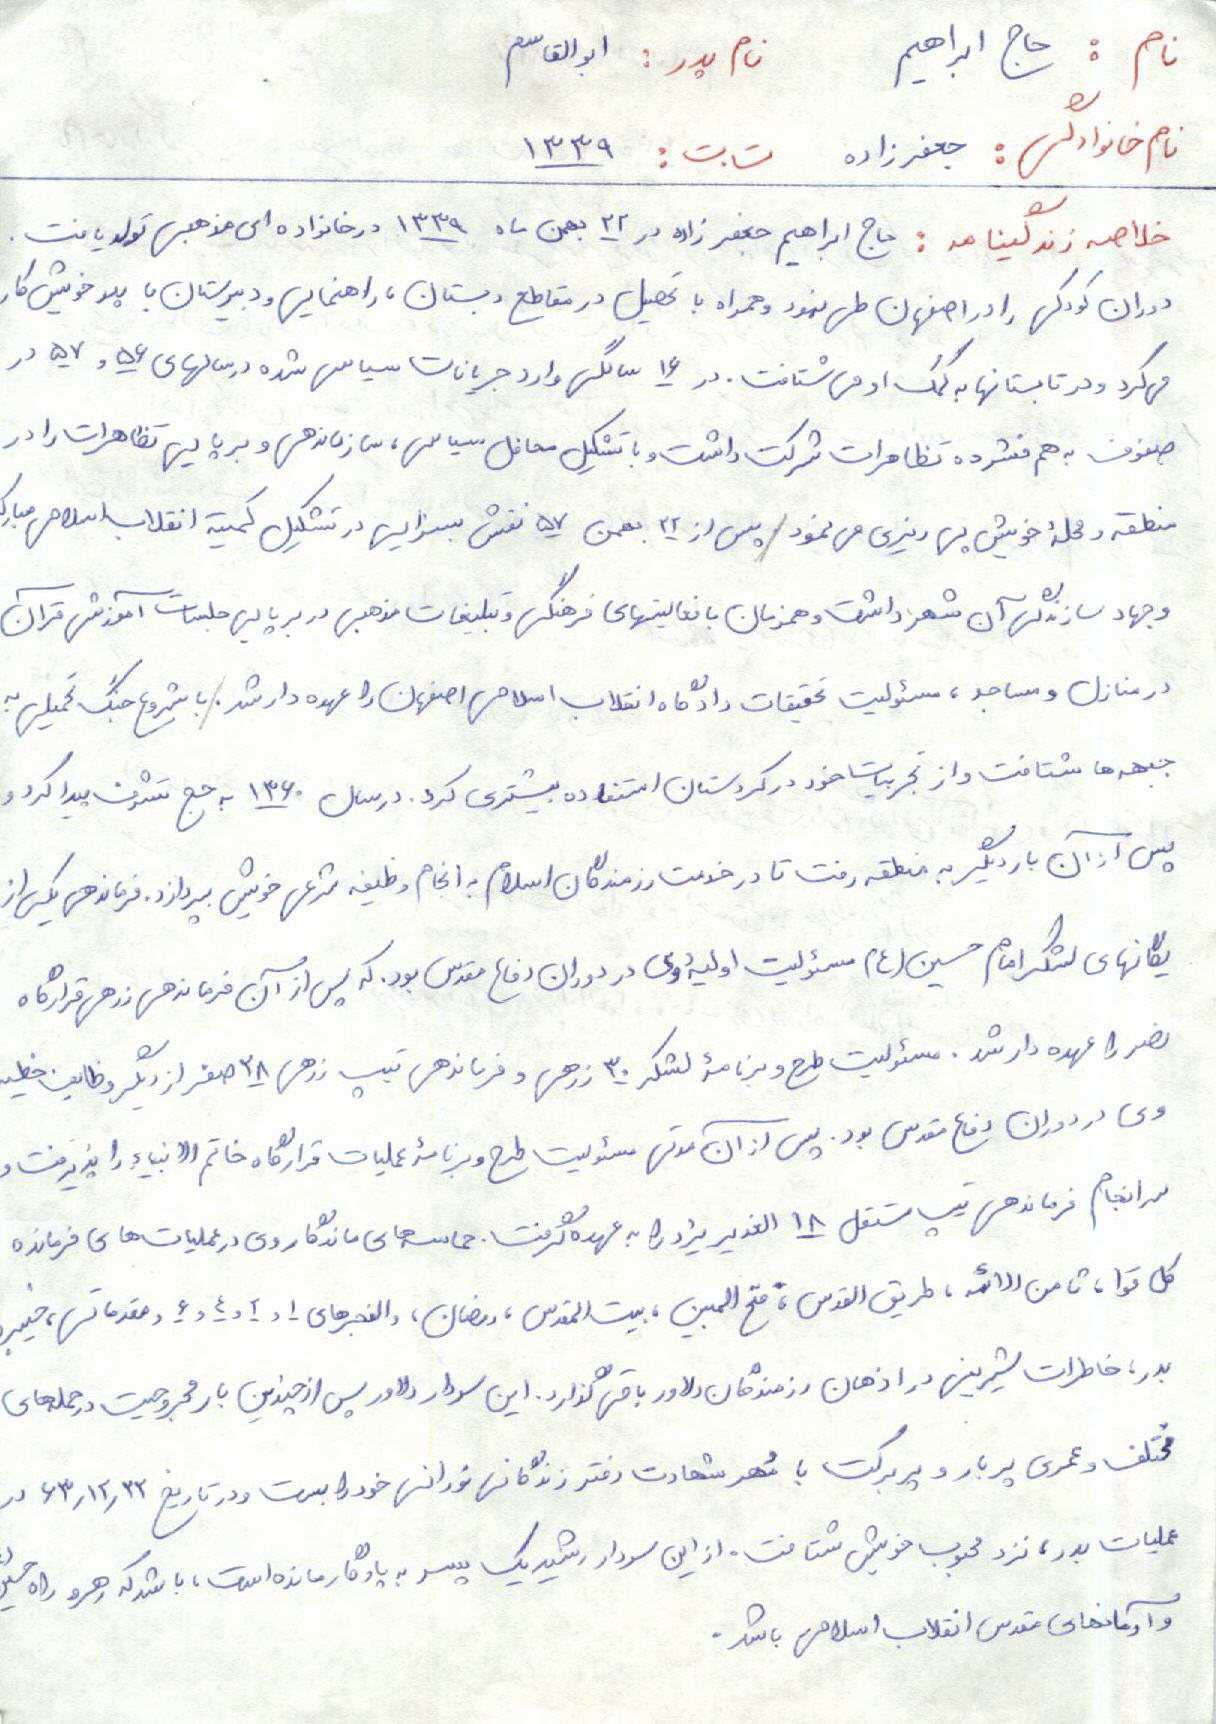 نام : حاج ابراهیم نام پدر : ابوالقاسم
نام خانوادگی : جعفرزاده ت ت : ۱۳۳۹
خلاصه زندگینامه : حاج ابراهیم جعفرزاده در ۲۲ بهمن ماه ۱۳۳۹ در خانواده ای مذهبی تولد یافت .
دوران کودکی را در اصفهان طی نمود و همراه با تحصیل در مقاطع دبستان ، راهنمایی و دبیرستان با پدر خویش کار
می کرد و در تابستانها به کمک او می شتافت . در ۱۶ سالگی وارد جریانات سیاسی شده در سالهای ۵۶ و ۵۷ در
صفوف به هم فشرده تظاهرات شرکت داشت و با تشکیل محافل سیاسی ، سازماندهی و برپایی تظاهرات را در
منطقه و محلهٔ خویش پی ریزی می نمود / پس از ۲۲ بهمن ۵۷ نقش بسزایی در تشکیل کمیتهٔ انقلاب اسلامی مبارکه
و جهاد سازندگی آن شهر داشت و همزمان با فعالیتهای فرهنگی و تبلیغات مذهبی در برپایی جلسات آموزش قرآن
در منازل و مساجد ، مسئولیت تحقیقات دادگاه انقلاب اسلامی اصفهان را عهده دار شد . / با شروع جنگ تحمیلی به
جبهه ها شتافت و از تجربیات خود در کردستان استفاده بیشتری کرد . در سال ۱۳۶۰ به حج تشرف پیدا کرد و
پس از آن بار دیگر به منطقه رفت تا در خدمت رزمندگان اسلام به انجام وظیفه شرعی خویش بپردازد . فرماندهی یکی از
یگانهای لشگر امام حسین (ع) مسئولیت اولیهٔ وی در دوران دفاع مقدس بود . که پس از آن فرماندهی زرهی قرارگاه
نصر را عهده دار شد . مسئولیت طرح و برنامهٔ لشگر ۳۰ زرهی و فرماندهی تیپ زرهی ۳۸ صفر از دیگر وظایف خطیر
وی در دوران دفاع مقدس بود . پس از آن مدتی مسئولیت طرح و برنامهٔ عملیات قرارگاه خاتم الانبیاء را پذیرفت و
سرانجام فرماندهی تیپ مستقل ۱۸ الغدیر یزد را به عهده گرفت . حماسه های ماندگار وی در عملیات های فرمانده
کل قوا ، ثامن الائمه ، طریق القدس ، فتح المبین ، بیت المقدس ، رمضان ، والفجرهای ۱ و ۲ و ٤ و ۶ و مقدماتی ، خیبر و
بدر ، خاطرات شیرینی در اذهان رزمندگان دلاور باقی گذارد . این سردار دلاور پس از چندین بار مجروحیت در حمله های
مختلف و عمری پر بار و پر برکت با مُهر شهادت دفتر زندگانی نورانی خود را بست و در تاریخ ۶۳٫۱۲٫۲۲ در
عملیات بدر ، نزد محبوب خویش شتافت . از این سردار رشید یک پسر به یادگار مانده است ، باشد که رهرو راه حسین (ع)
و آرمانهای مقدس انقلاب اسلامی باشد .